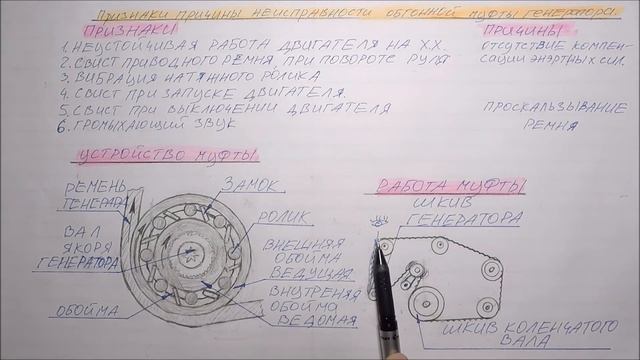 ПРИЗНАКИ ПРИЧИНЫ НЕИСПРАВНОСТИ ОБГОННОЙ МУФТЫ ГЕНЕРАТОРА.
ПРИЗНАКИ
1. НЕУСТОЙЧИВАЯ РАБОТА ДВИГАТЕЛЯ НА Х.Х.
2. СВИСТ ПРИВОДНОГО РЕМНЯ ПРИ ПОВОРОТЕ РУЛЯ
3. ВИБРАЦИЯ НАТЯЖНОГО РОЛИКА
4. СВИСТ ПРИ ЗАПУСКЕ ДВИГАТЕЛЯ.
5. СВИСТ ПРИ ВЫКЛЮЧЕНИИ ДВИГАТЕЛЯ
6. ГРОМЫХАЮЩИЙ ЗВУК
ПРИЧИНЫ
ОТСУТСТВИЕ КОМПЕН-
САЦИИ ЭНЭРТНЫХ СИЛ.
ПРОСКАЛЬЗЫВАНИЕ
РЕМНЯ
УСТРОЙСТВО МУФТЫ
РЕМЕНЬ
ГЕНЕРАТ.
ВАЛ
ЯКОРЯ
ГЕНЕРАТОРА
ОБОЙМА
ЗАМОК
РОЛИК
ВНЕШНЯЯ
ОБОЙМА
ВЕДУЩАЯ
ВНУТРЕНЯЯ
ОБОЙМА
ВЕДОМАЯ
РАБОТА МУФТЫ
ШКИВ
ГЕНЕРАТОРА
ШКИВ КОЛЕНЧАТОГО
ВАЛА